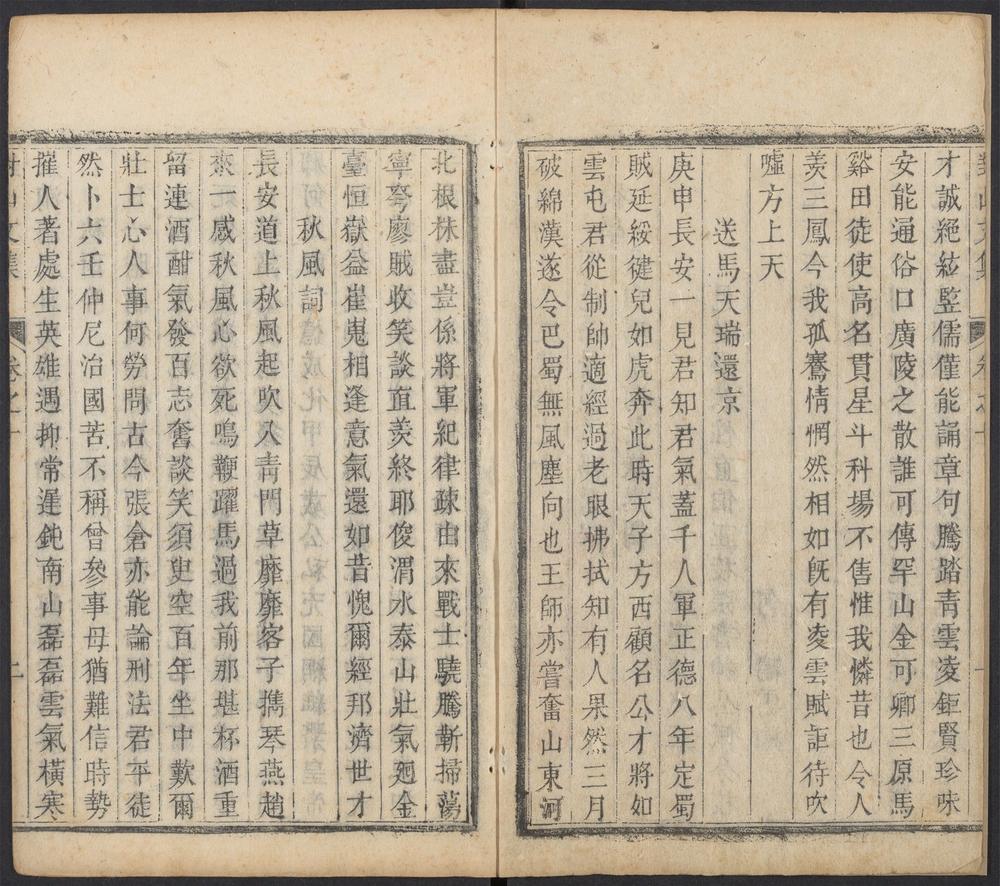 對山文集　卷之一
才誠絕竝監儒僅能誦章句騰踏青雲凌鉅賢珍味
安能通俗口廣陵之散誰可傳罕山金可卿三原馬
谿田徒使高名貫星斗科場不售惟我憐昔也令人
羨三鳳今我孤騫情惘然相如旣有凌雲賦詎待吹
噓方上天
送馬天瑞還京
庚申長安一見君知君氣蓋千人軍正德八年定蜀
賊延綏健兒如虎奔此時天子方西顧名公才將如
雲屯君從制帥適經過老眼拂拭知有人果然三月
破綿漢遂令巴蜀無風塵向也王師亦嘗奮山東河
北根株盡豈係將軍紀律疎由來戰士驍騰斬掃蕩
寧夸廖賊收笑談直羨終耶俊渭水泰山壯氣廻金
臺恒嶽益崔嵬相逢意氣還如昔愧爾經邦濟世才
秋風詞
長安道上秋風起吹入青門草靡靡客子擕琴燕趙
來一感秋風心欲死鳴鞭躍馬過我前那堪杯酒重
留連酒酣氣發百志奮談笑須臾空百年坐中歎爾
壯士心人事何勞問古今張倉亦能論刑法君平徒
然卜六壬仲尼治國苦不稱曾參事母猶難信時勢
摧人著處生英雄遇抑常遲鈍南山磊磊雲氣橫寒
對山文集　卷之一